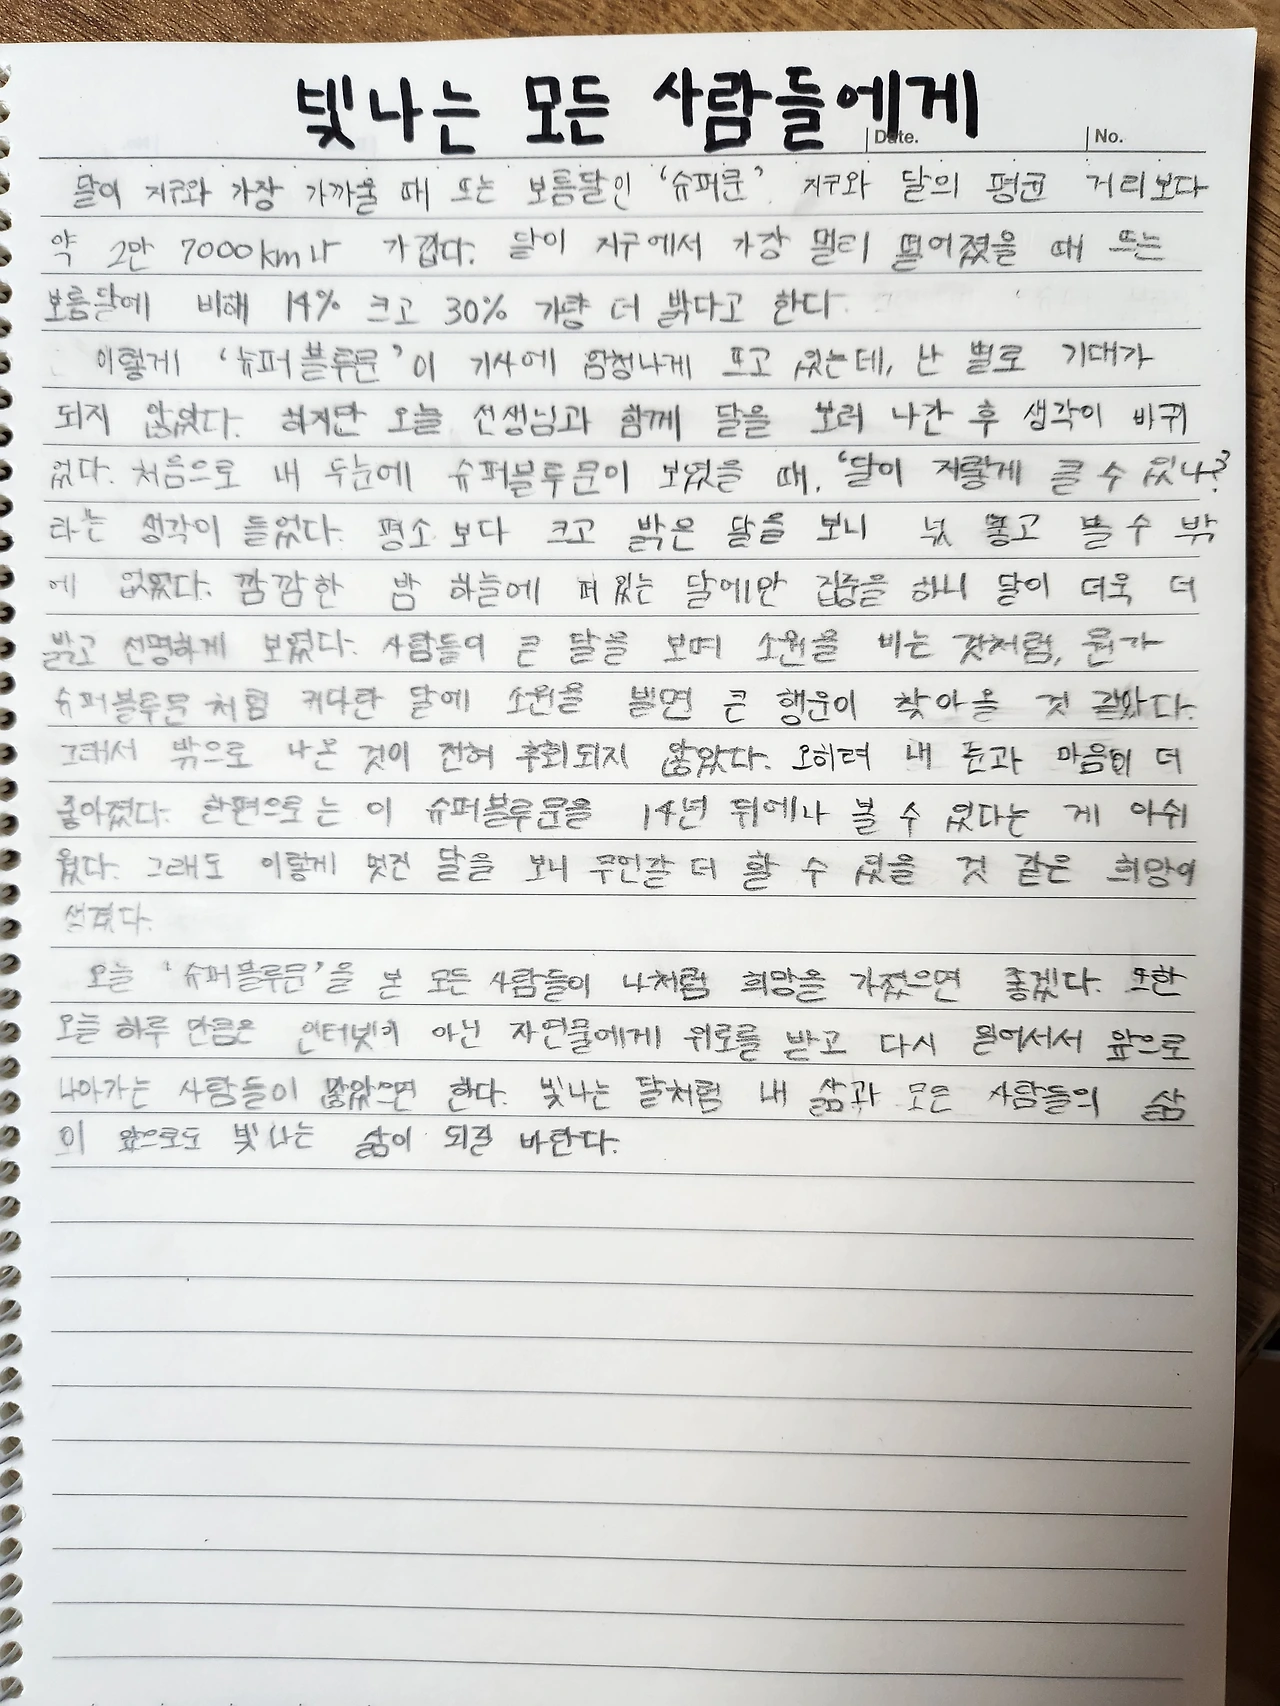 빛나는 모든 사람들에게
Date.
No.
달이 지구와 가장 가까울 때 뜨는 보름달인 '슈퍼문'. 지구와 달의 평균 거리보다
약 2만 7000km나 가깝다. 달이 지구에서 가장 멀리 떨어졌을 때 뜨는
보름달에 비해 14% 크고 30% 가량 더 밝다고 한다.
이렇게 '슈퍼블루문'이 기사에 엄청나게 뜨고 있는데, 난 별로 기대가
되지 않았다. 하지만 오늘 선생님과 함께 달을 보러 나간 후 생각이 바뀌
었다. 처음으로 내 두눈에 슈퍼블루문이 보였을 때, '달이 저렇게 클 수 있나?'
라는 생각이 들었다. 평소보다 크고 밝은 달을 보니 넋 놓고 볼 수 밖
에 없었다. 깜깜한 밤 하늘에 떠 있는 달에만 집중을 하니 달이 더욱 더
밝고 선명하게 보였다. 사람들이 큰 달을 보며 소원을 비는 것처럼, 뭔가
슈퍼블루문처럼 커다란 달에 소원을 빌면 큰 행운이 찾아올 것 같았다.
그래서 밖으로 나온 것이 전혀 후회되지 않았다. 오히려 내 눈과 마음이 더
좋아졌다. 한편으로는 이 슈퍼블루문을 14년 뒤에나 볼 수 있다는 게 아쉬
웠다. 그래도 이렇게 멋진 달을 보니 무언갈 더 할 수 있을 것 같은 희망이
생겼다.
오늘 '슈퍼블루문'을 본 모든 사람들이 나처럼 희망을 가졌으면 좋겠다. 또한
오늘 하루 만큼은 인터넷이 아닌 자연물에게 위로를 받고 다시 일어서서 앞으로
나아가는 사람들이 많았으면 한다. 빛나는 달처럼 내 삶과 모든 사람들의 삶
이 앞으로도 빛나는 삶이 되길 바란다.